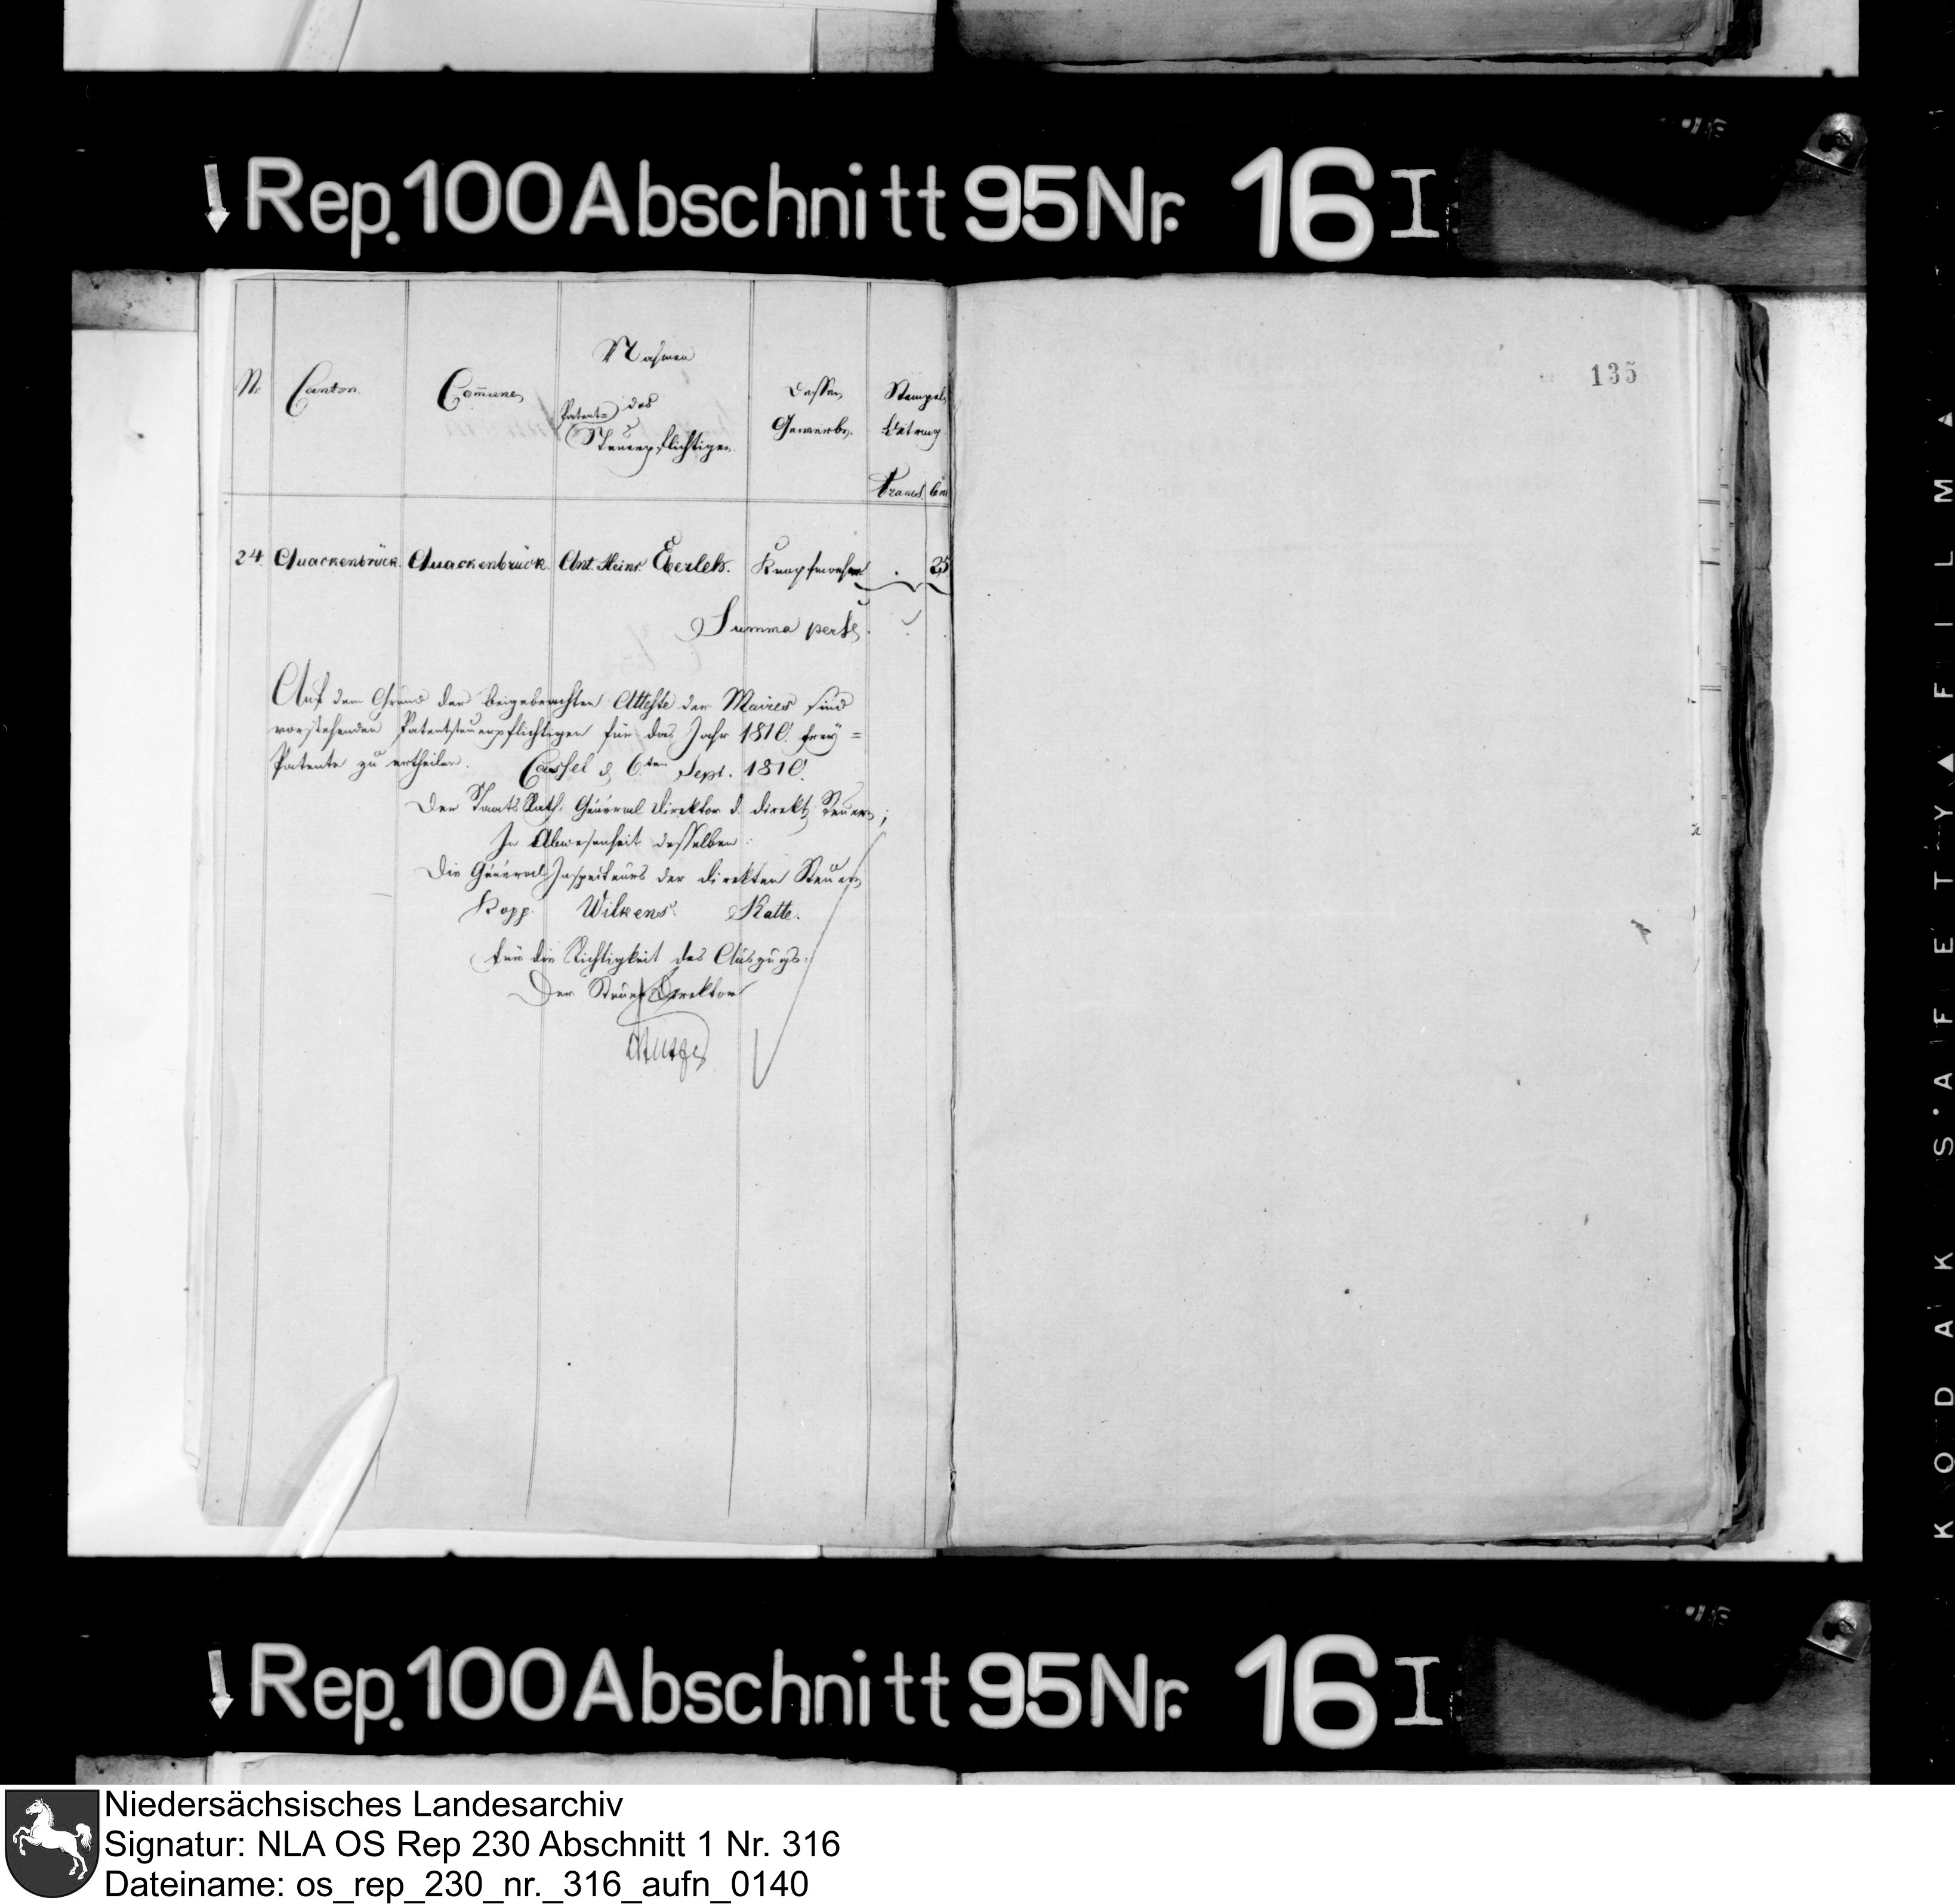 Rep. 100 Abschnitt 95 Nr. 16 I
135
No Canton. Commune Nahmen des Patent= Steuerpflichtigen. Dessen Gewerbe. Stempel Betrag Francs. Cent
24. Quackenbrück. Quackenbrück. Ant. Heinr. Knopfmacher . 25
Summa per se.
Auf dem Grund der beigebrachten Atteste der Maires sind
vorstehenden Patentsteuerpflichtigen für das Jahr 1810. frey=
Patente zu ertheilen. Cassel d. 6ten Sept. 1810.
Der StaatsRath, General Direktor d. direkt. Steuern;
In Abwesenheit desselben:
Die General-Inspecteurs der direkten Steuern
Kopp. Wilkens. Katte.
für die Richtigkeit des Auszugs:
Der Steuer Direktor
Rep. 100 Abschnitt 95 Nr. 16 I
KODAK SAFETY FILM
Niedersächsisches Landesarchiv
Signatur: NLA OS Rep 230 Abschnitt 1 Nr. 316
Dateiname: os_rep_230_nr._316_aufn_0140